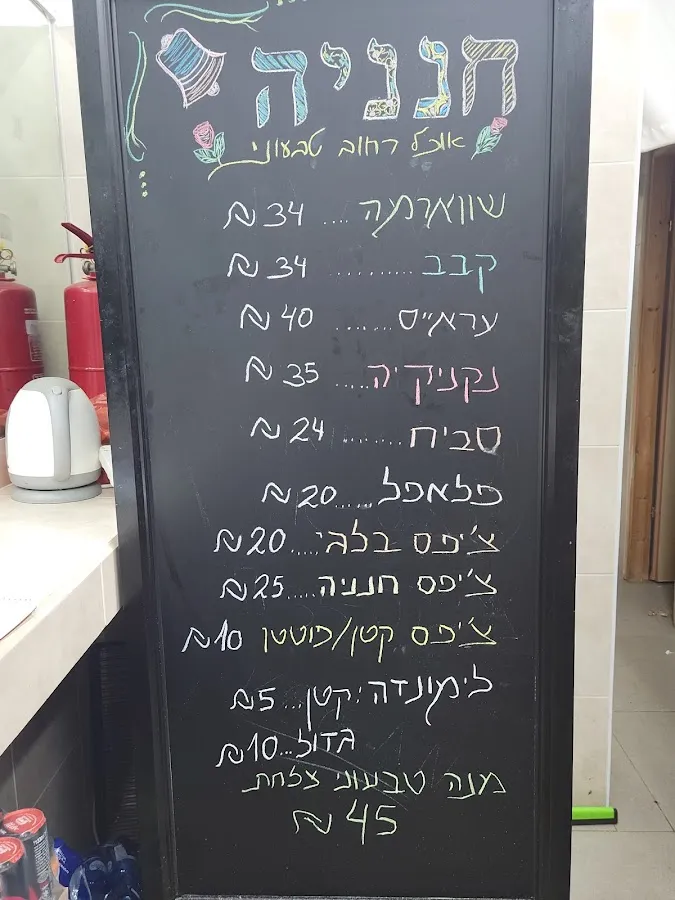 חנניה
אוכל רחוב טבעוני
שווארמה .... 34 ₪
קבב .......... 34 ₪
עראייס ....... 40 ₪
נקניקיה ..... 35 ₪
סביח ......... 24 ₪
פלאפל ...... 20 ₪
צ'יפס בלגי ..... 20 ₪
צ'יפס חנניה ..... 25 ₪
צ'יפס קטן/פוטטו 10 ₪
לימונדה: קטן ... 5 ₪
גדול ... 10 ₪
מנה טבעוני צלחת
45 ₪